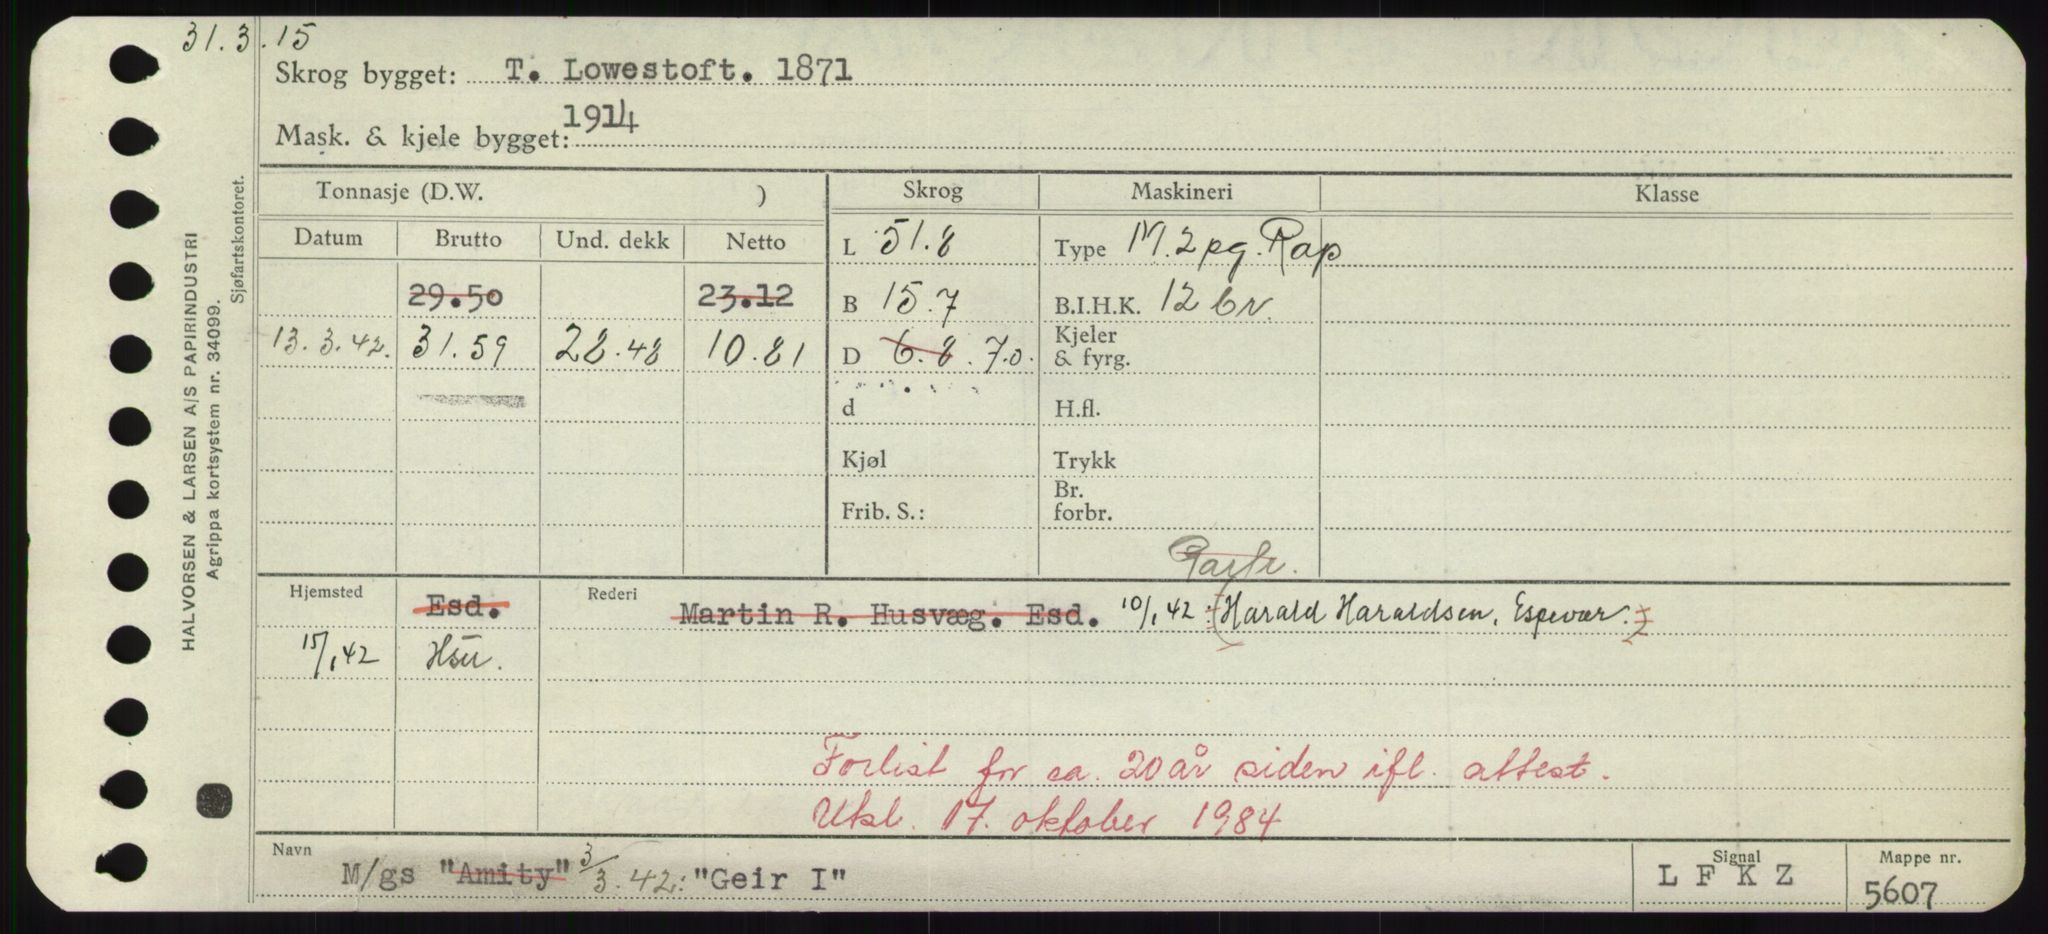 31.3.15
Skrog bygget: T. Lowestoft. 1871
Mask. & kjele bygget: 1914
HALVORSEN & LARSEN A/S PAPIRINDUSTRI
Agrippa kortsystem nr. 34099.
Sjøfartskontoret.
Tonnasje (D.W. ) Skrog Maskineri Klasse
Datum Brutto Und. dekk Netto L 51.8 Type M. 2 pg. Rap
29.50 23.12 B 15.7 B.I.H.K. 12 br.
13.3.42. 31.59 28.48 10.81 D 6.8. 7.0. Kjeler & fyrg.
d H.fl.
Kjøl Trykk
Frib. S.: Br. forbr.
Hjemsted Esd. Rederi Martin R. Husvæg. Esd. 10/1 42: (Harald Haraldsen, Espevær.)
15/1 42 Hsu.
Forlist for ca. 20 år siden ifl. attest.
Utsl. 17. oktober 1984
Navn M/gs "Amity" 3/3.42: "Geir I" Signal L F K Z Mappe nr. 5607